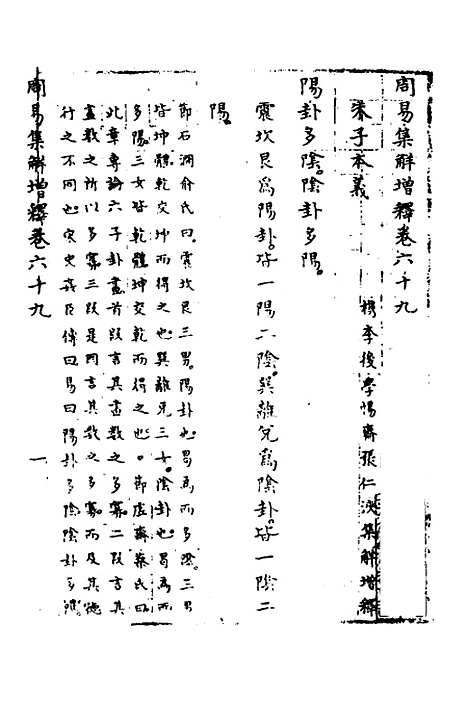 周易集解增釋卷六十九
朱子本義
檇李後學惕齋張仁浹集解增釋
陽卦多陰。陰卦多陽。
震坎艮為陽卦。皆一陽二陰。巽離兌為陰卦。皆一陰二
陽。
節石澗俞氏曰。震坎艮三男。陽卦也。曷為而多陰。三男
皆坤體。乾交坤而得之也。巽離兌三女。陰卦也。曷為而
多陽。三女皆乾體。坤交乾而得之也。節虛齋蔡氏曰
此章專論六子卦畫。首段言其畫數之多寡。二段言其
畫數之所以多寡。三段是因言其數之多寡。而及其德
行之不同也。宋史 臣傳曰。易曰陽卦多陰。陰卦多陽。
周易集解增釋卷六十九
一